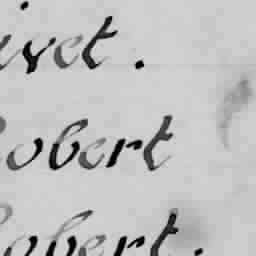 ivet.
Robert
Robert.